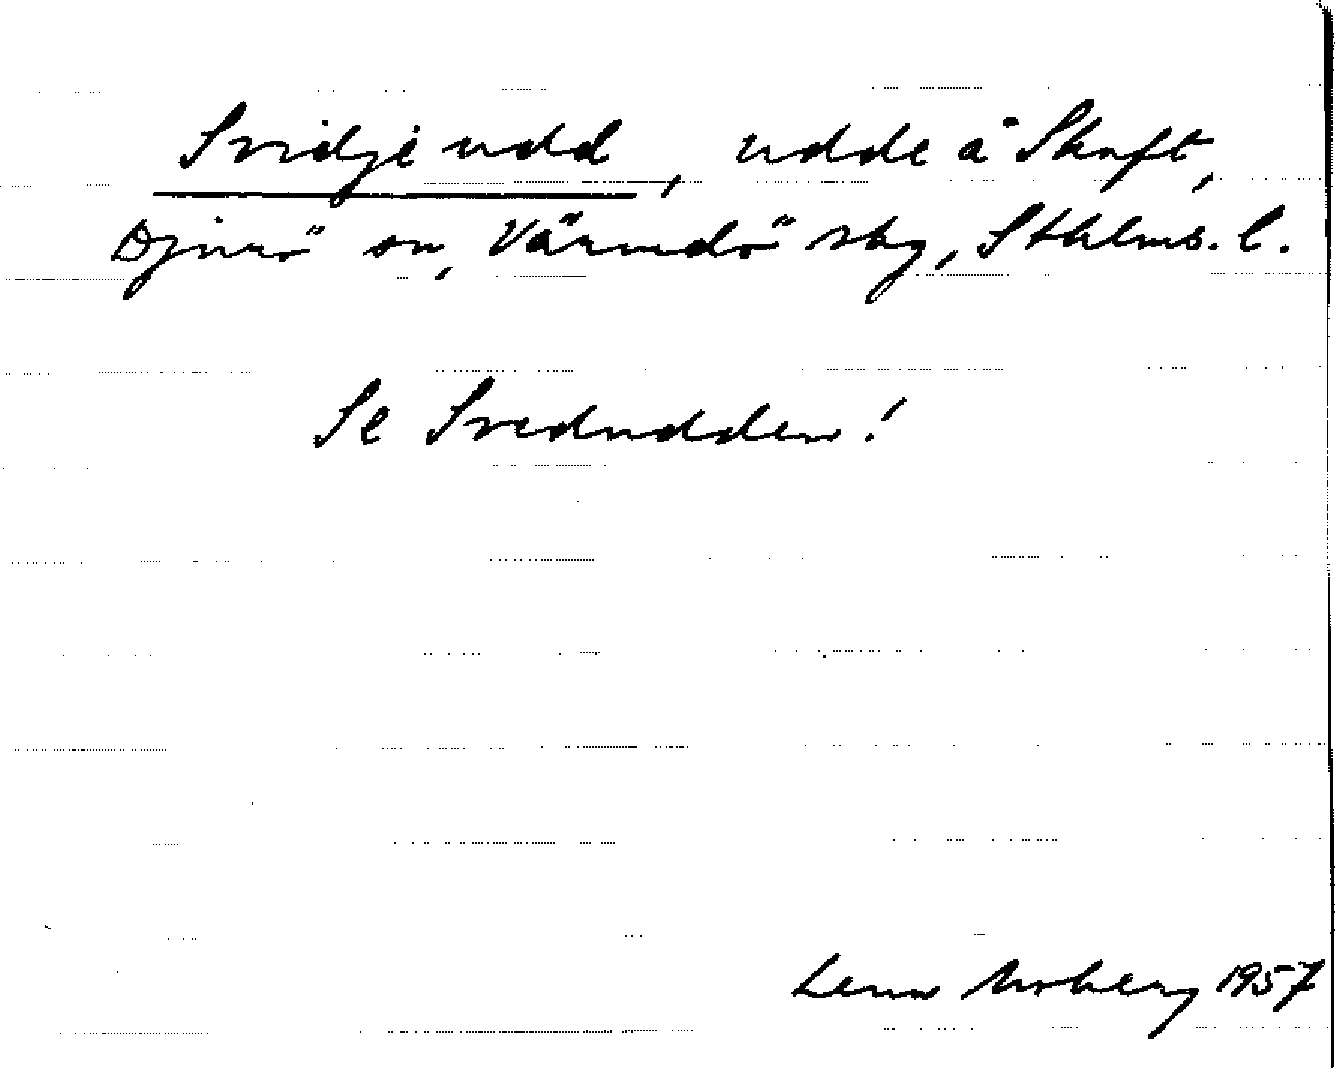 Svidje udd, udde å Skaft,
Djurö sn, Värmdö skg, Sthlms. l.
Se Svedudden!
Lena Moberg 1957